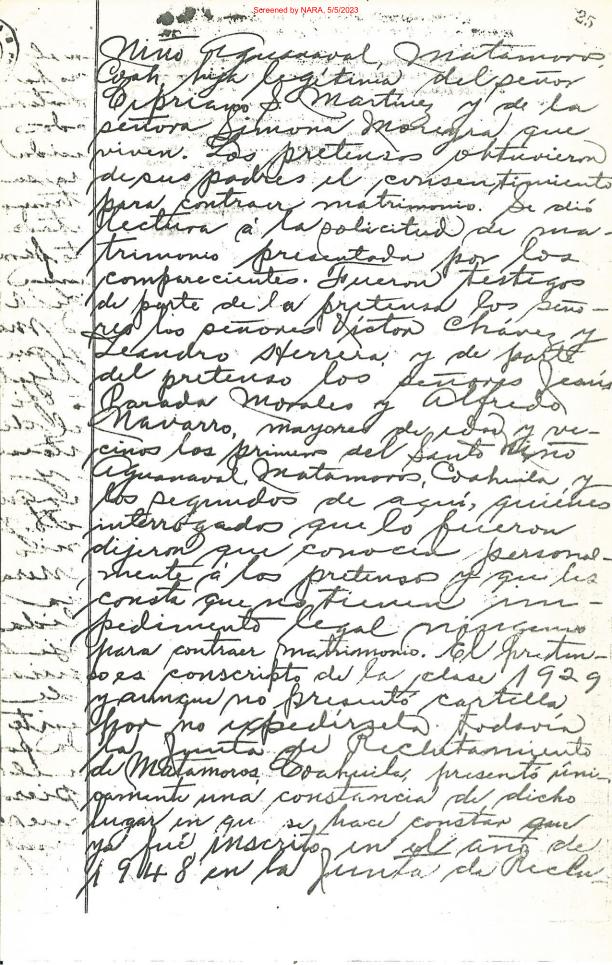 Screened by NARA, 5/5/2023
25
Niño Aguanaval, Matamoros
Coah, hija legítima del señor
Cipriano S. Martinez y de la
señora Simona Moreyra que
viven. Los pretensos obtuvieron
de sus padres el consentimiento
para contraer matrimonio. Se dió
lectura á la solicitud de ma-
trimonio presentada por los
comparecientes. Fueron testigos
de parte de la pretensa los seño-
res los señores Victor Chávez y
Leandro Herrera, y de parte
del pretenso los señores Jesús
Parada Morales y Alfredo
Navarro, mayores de edad y ve-
cinos los primeros del Santo Niño
Aguanaval, Matamoros, Coahuila, y
los segundos de aquí, quienes
interrogados que lo fueron
dijeron que conocen personal-
mente á los pretensos y que les
consta que no tienen im-
pedimento legal ninguno
para contraer matrimonio. El preten-
so es conscripto de la clase 1929
y aunque no presentó cartilla
por no expedírsela todavía
la Junta de Reclutamiento
de Matamoros, Coahuila, presentó úni-
camente una constancia de dicho
lugar en que se hace constar que
ya fué inscrito en el año de
1948 en la Junta de Reclu-